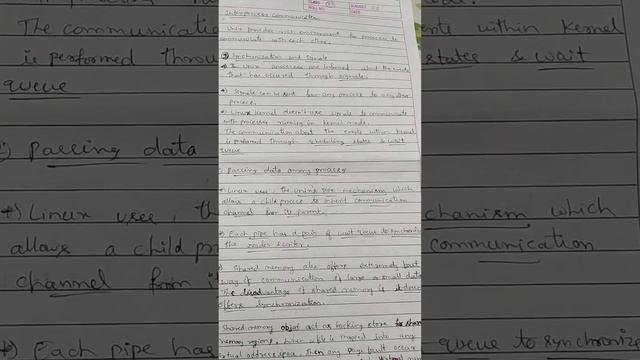 Interprocess Communication
Unix provides rich environment for processes to
communicate with each other.
① Synchronization and Signals
→ In Unix processes are informed about the events
that has occured through signals.
→) Signals can be sent from any process to any other
process.
→) Linux kernel doesn't use signals to communicate
with processes running in kernel mode.
The communication about the events within kernel
is performed through scheduling states & wait
queue
) Passing data among process
→) Linux uses, the unix pipe mechanism which
allows a child process to inherit communication
channel from its parent.
→) Each pipe has a pair of wait queue to synchronize
the reader & writer.
) Shared memory also offers extremely fast
way of communication of large or small data
The disadvantage of shared memory is it does
offers synchronization.
Shared memory object act as backing store for shared
memory regions. When a file is mapped into any
virtual address space. Then any page fault occur
The communicatio
is performed throu
queue
) Passing data
→) Linux uses, th
allows a child pr
channel from i
→) Each pipe has
ents within Kernel
states & wait
chanism which
communication
queue to synchroniz